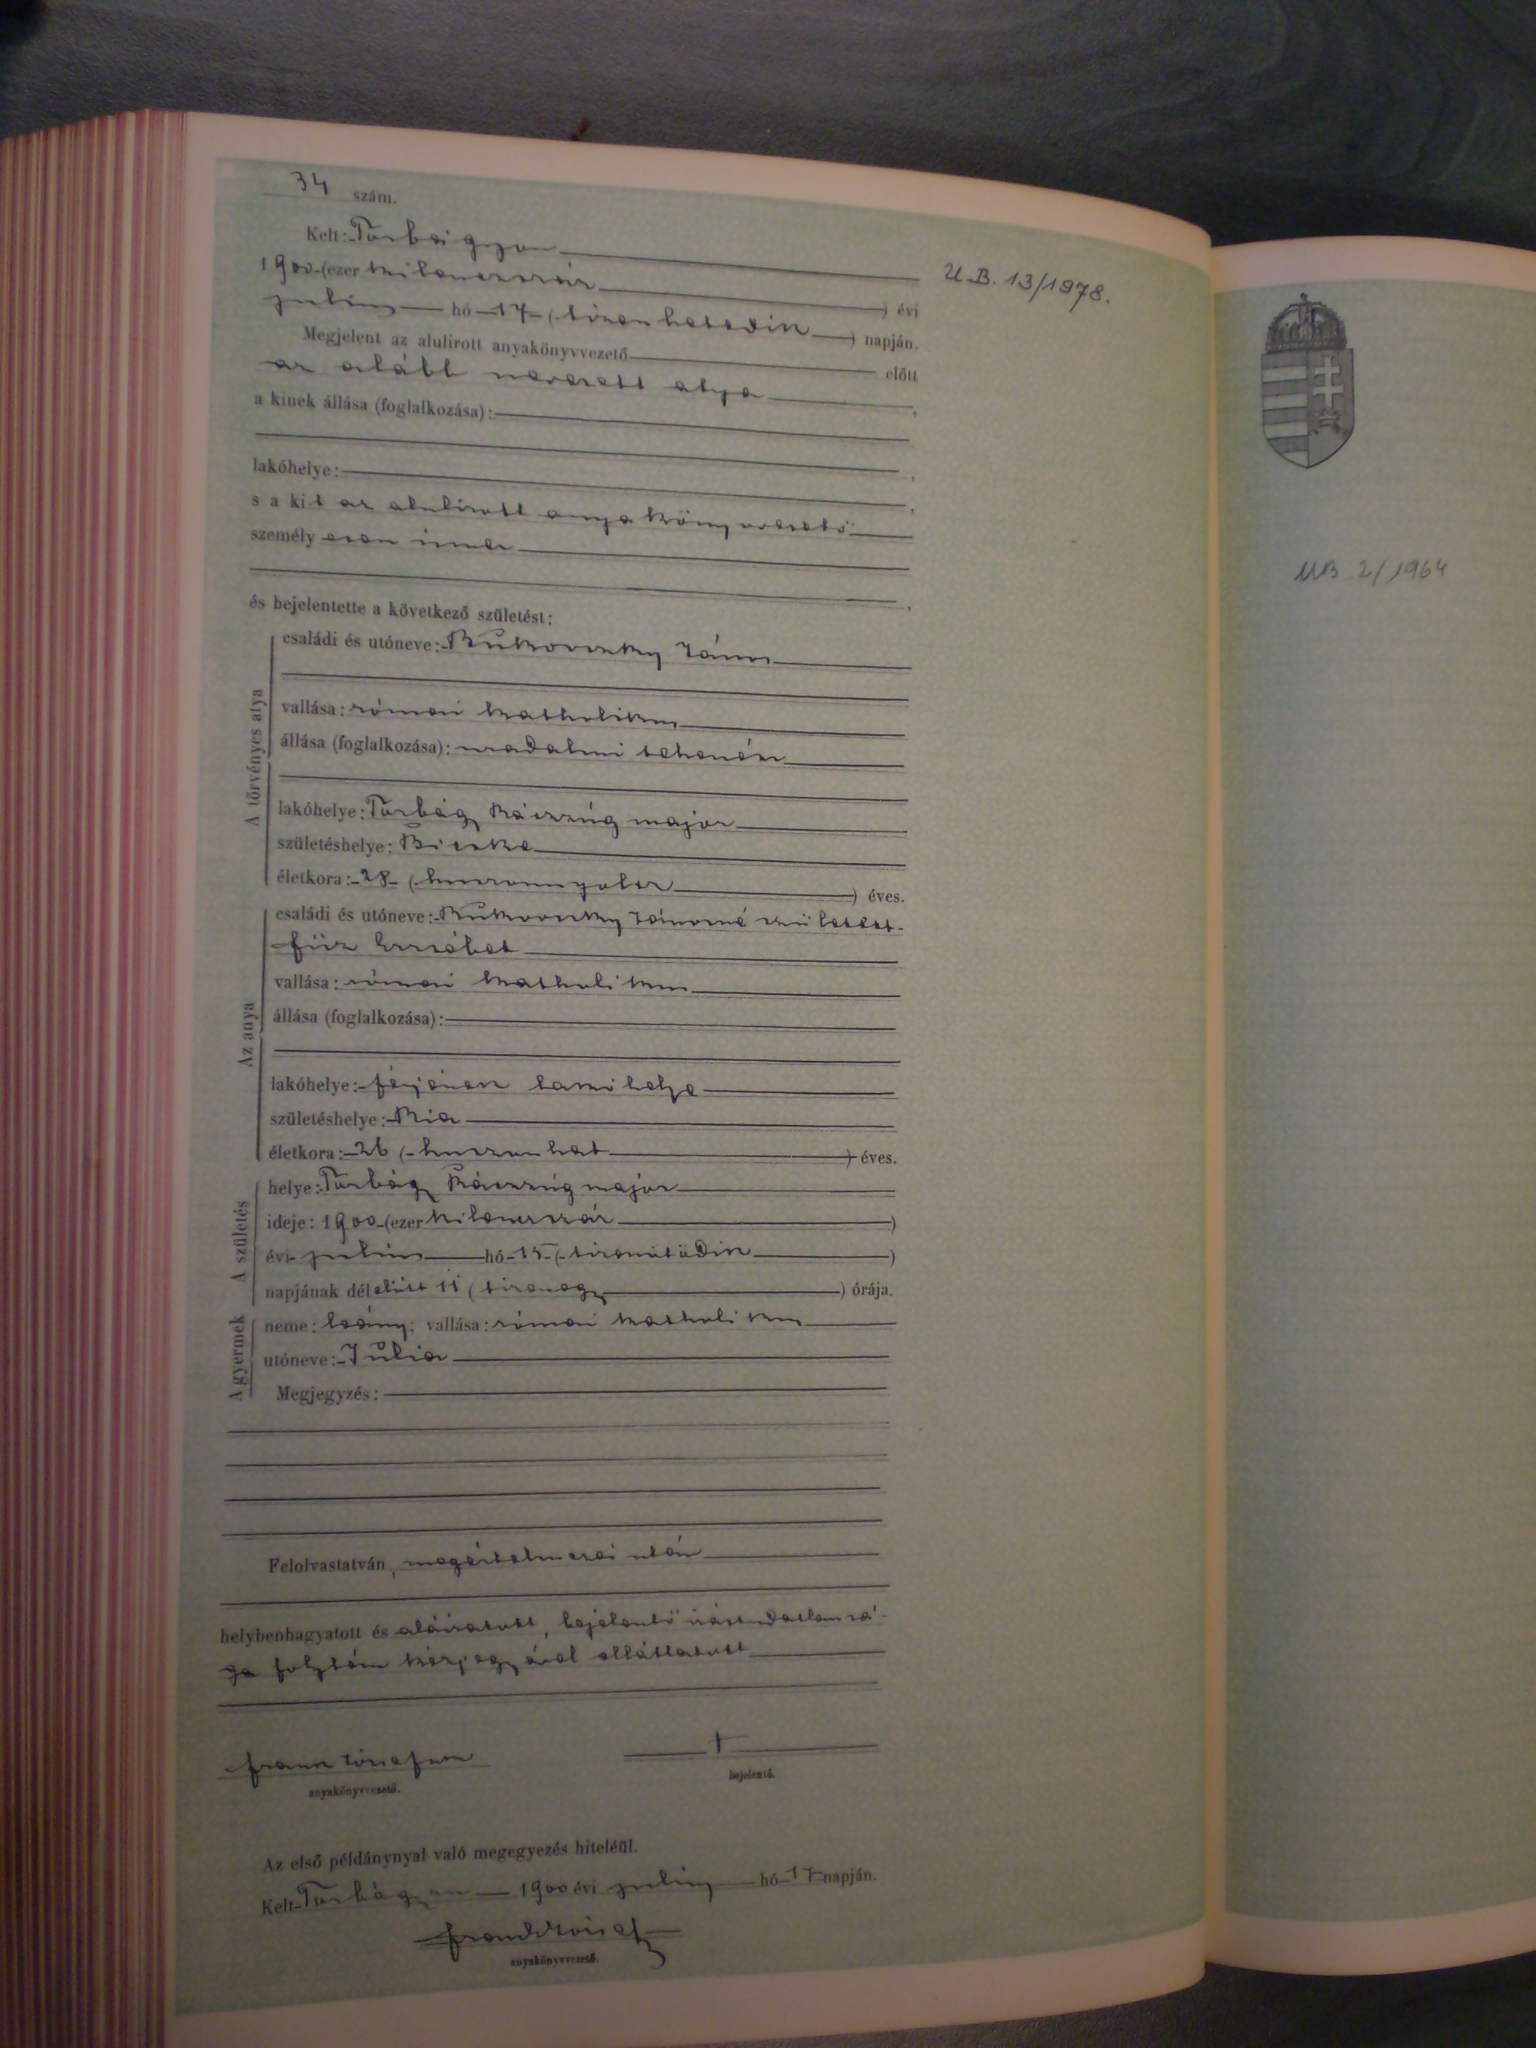 34 szám.
Kelt: Torbágyon
1900 (ezer kilenczszáz ) évi
julius hó 17 (tizenhetedik ) napján.
Megjelent az alulirott anyakönyvvezető előtt
az alább nevezett atya ,
a kinek állása (foglalkozása):
lakóhelye: ,
s a kit az alulirott anyakönyvvezető ,
személyesen ismer
,
és bejelentette a következő születést:
A törvényes atya
családi és utóneve: János
vallása: római katholikus
állása (foglalkozása): uradalmi tehenész
lakóhelye: Torbágy major
születéshelye: Bicske
életkora: 28 (huszonnyolcz ) éves.
Az anya
családi és utóneve: Jánosné született
Füz Erzsébet
vallása: római katholikus
állása (foglalkozása):
lakóhelye: férjének lakóhelye
születéshelye: Bia
életkora: 26 (huszonhat ) éves.
A születés
helye: Torbágy major
ideje: 1900 (ezer kilenczszáz )
évi julius hó 15 (tizenötödik )
napjának délelőtt 11 (tizenegy ) órája.
A gyermek
neme: leány; vallása: római katholikus
utóneve: Julia
Megjegyzés:
Felolvastatván, megértelmezése után
helybenhagyatott és aláiratott, bejelentő irástudatlansá-
ga folytán kézjegyével elláttatott
anyakönyvvezető.
bejelentő.
Az első példánynyal való megegyezés hiteléül.
Kelt Torbágyon 1900 évi julius hó 17 napján.
anyakönyvvezető.
U.B. 13/1978.
UB. 2/1964